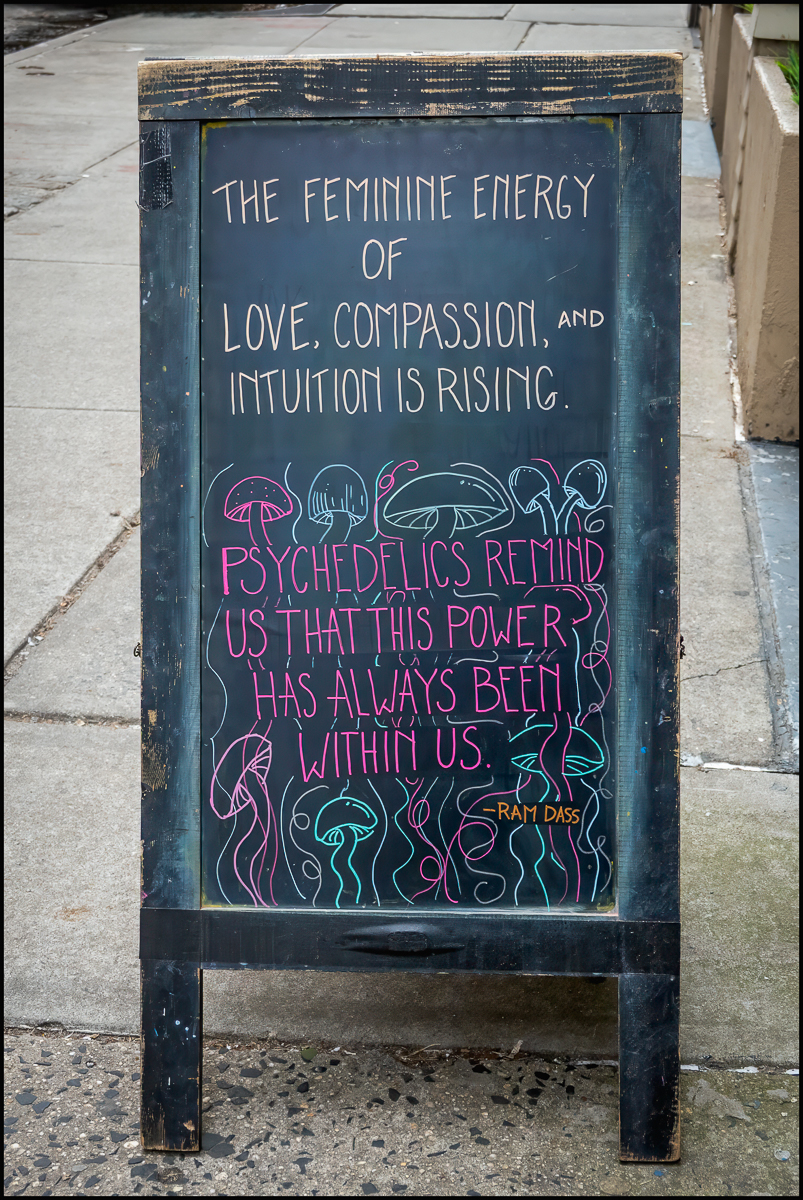 THE FEMININE ENERGY
OF
LOVE, COMPASSION, AND
INTUITION IS RISING.
PSYCHEDELICS REMIND
US THAT THIS POWER
HAS ALWAYS BEEN
WITHIN US.
-RAM DASS